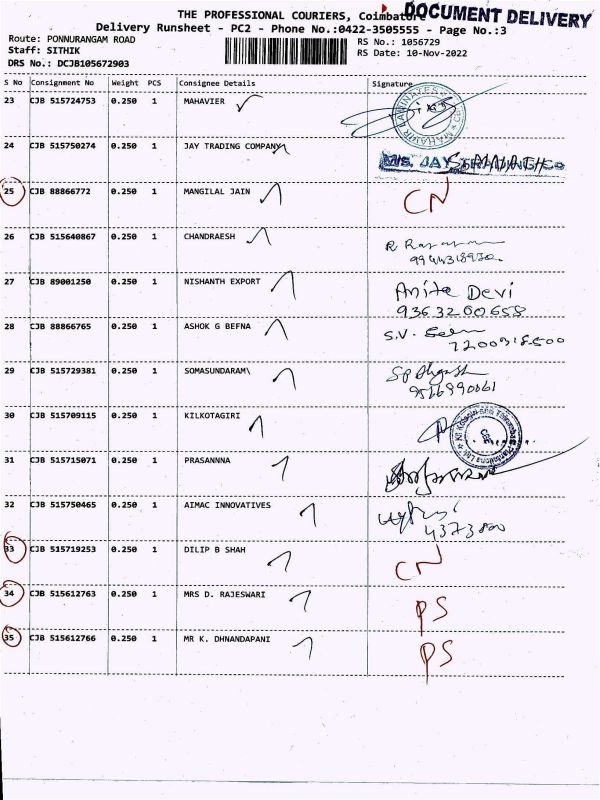 DOCUMENT DELIVERY
THE PROFESSIONAL COURIERS, Coimbatore
Delivery Runsheet - PC2 - Phone No.:0422-3505555 - Page No.:3
Route: PONNURANGAM ROAD RS No.: 1056729
Staff: SITHIK RS Date: 10-Nov-2022
DRS No.: DCJB105672903
S No Consignment No Weight PCS Consignee Details Signature
23 CJB 515724753 0.250 1 MAHAVIER
24 CJB 515750274 0.250 1 JAY TRADING COMPANY
25 CJB 88866772 0.250 1 MANGILAL JAIN CN
26 CJB 515640867 0.250 1 CHANDRAESH
27 CJB 89001250 0.250 1 NISHANTH EXPORT Anita Devi
9363200658
28 CJB 88866765 0.250 1 ASHOK G BEFNA S.V.
29 CJB 515729381 0.250 1 SOMASUNDARAM\
30 CJB 515709115 0.250 1 KILKOTAGIRI
31 CJB 515715071 0.250 1 PRASANNNA
32 CJB 515750465 0.250 1 AIMAC INNOVATIVES
33 CJB 515719253 0.250 1 DILIP B SHAH CN
34 CJB 515612763 0.250 1 MRS D. RAJESWARI PS
35 CJB 515612766 0.250 1 MR K. DHNANDAPANI PS